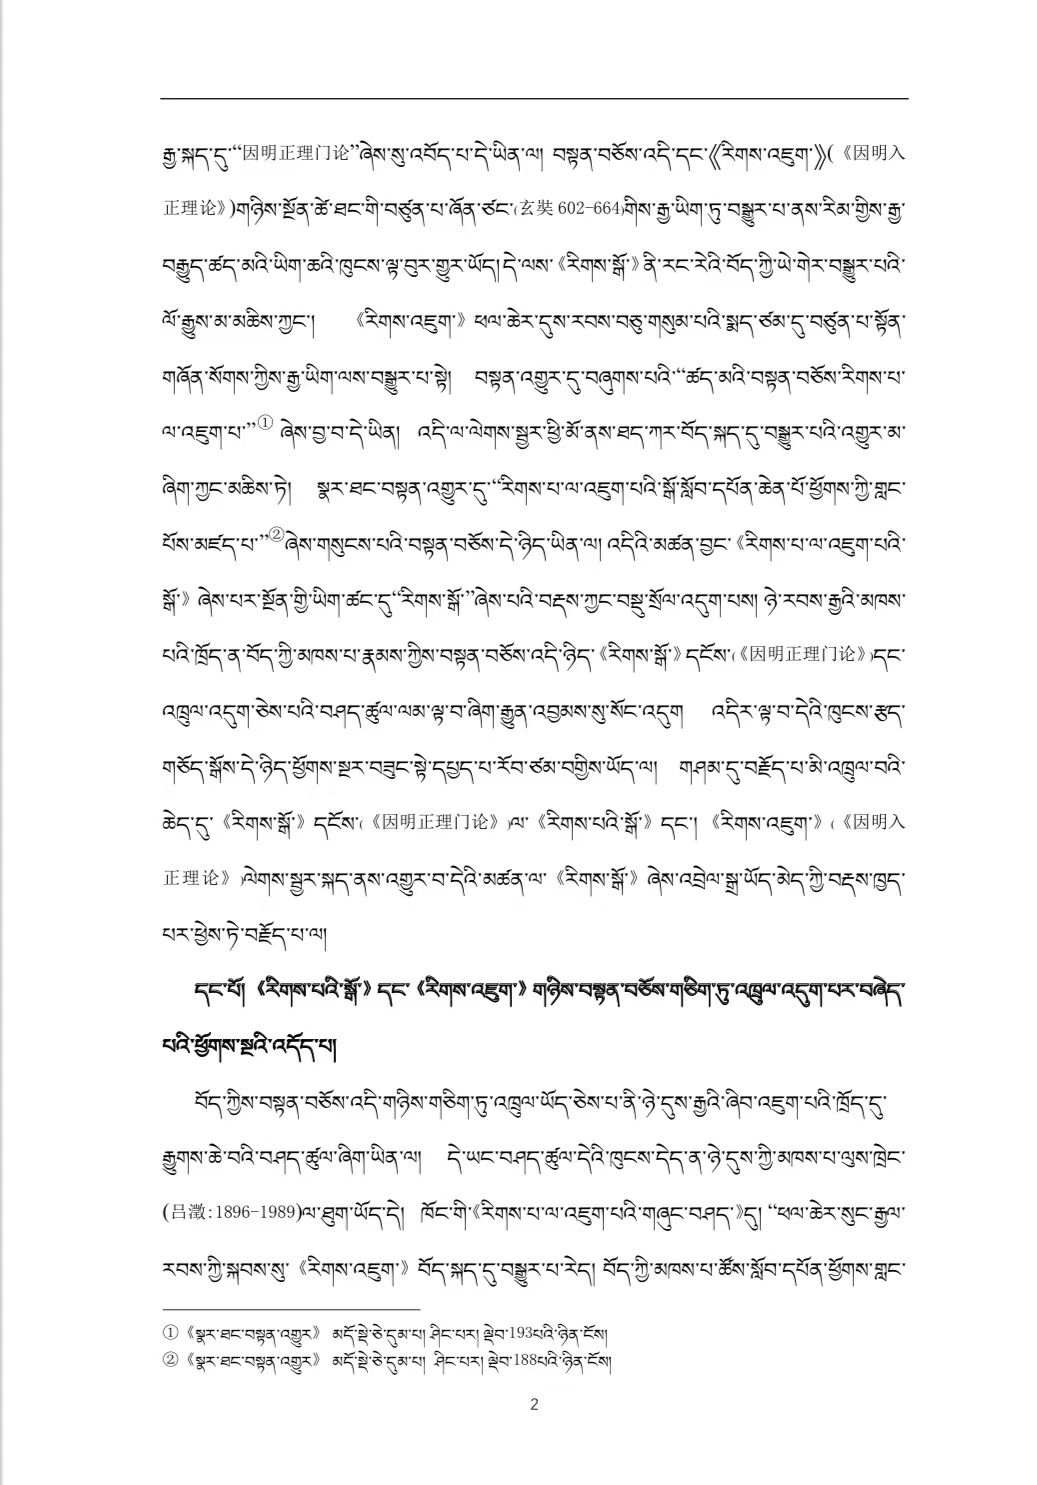 རྒྱ་སྐད་དུ་“因明正理门论”ཞེས་སུ་འབོད་པ་དེ་ཡིན་ལ། བསྟན་བཅོས་འདི་དང་《རིགས་འཇུག་》(《因明入
正理论》)གཉིས་སྔོན་ཚེ་ཐང་གི་བཙུན་པ་ཞོན་ཙང་(玄奘 602-664)གིས་རྒྱ་ཡིག་ཏུ་བསྒྱུར་པ་ནས་རིམ་གྱིས་རྒྱ་
བརྒྱུད་ཚད་མའི་ཡིག་ཆའི་ཁུངས་ལྟ་བུར་གྱུར་ཡོད། དེ་ལས་《རིགས་སྒོ་》ནི་རང་རེའི་བོད་ཀྱི་ཡི་གེར་བསྒྱུར་པའི་
ལོ་རྒྱུས་མ་མཆིས་ཀྱང་། 《རིགས་འཇུག་》ཕལ་ཆེར་དུས་རབས་བཅུ་གསུམ་པའི་སྨད་ཙམ་དུ་བཙུན་པ་སྟོན་
གཞོན་སོགས་ཀྱིས་རྒྱ་ཡིག་ལས་བསྒྱུར་པ་སྟེ། བསྟན་འགྱུར་དུ་བཞུགས་པའི་“ཚད་མའི་བསྟན་བཅོས་རིགས་པ་
ལ་འཇུག་པ་”① ཞེས་བྱ་བ་དེ་ཡིན། འདི་ལ་ལེགས་སྦྱར་ཕྱི་མོ་ནས་ཐད་ཀར་བོད་སྐད་དུ་བསྒྱུར་པའི་འགྱུར་མ་
ཞིག་ཀྱང་མཆིས་ཏེ། སྣར་ཐང་བསྟན་འགྱུར་དུ་“རིགས་པ་ལ་འཇུག་པའི་སྒོ་སློབ་དཔོན་ཆེན་པོ་ཕྱོགས་ཀྱི་གླང་
པོས་མཛད་པ་”②ཞེས་གསུངས་པའི་བསྟན་བཅོས་དེ་ཉིད་ཡིན་ལ། འདིའི་མཚན་བྱང་《རིགས་པ་ལ་འཇུག་པའི་
སྒོ་》ཞེས་པར་སྔོན་གྱི་ཡིག་ཚང་དུ་“རིགས་སྒོ་”ཞེས་པའི་བརྡས་ཀྱང་བསྡུ་སྲོལ་འདུག་པས། ཉེ་རབས་རྒྱའི་མཁས་
པའི་ཁྲོད་ན་བོད་ཀྱི་མཁས་པ་རྣམས་ཀྱིས་བསྟན་བཅོས་འདི་ཉིད་《རིགས་སྒོ་》དངོས་(《因明正理门论》)དང་
འཁྲུལ་འདུག་ཅེས་པའི་བཤད་ཚུལ་ལམ་ལྟ་བ་ཞིག་རྒྱུན་འབྱམས་སུ་སོང་འདུག འདིར་ལྟ་བ་དེའི་ཁུངས་རྩད་
གཅོད་སྒོས་དེ་ཉིད་ཕྱོགས་སྔར་བཟུང་སྟེ་དཔྱད་པ་རོབ་ཙམ་བགྱིས་ཡོད་ལ། གཤམ་དུ་བརྗོད་པ་མི་འཁྲུལ་བའི་
ཆེད་དུ་《རིགས་སྒོ་》དངོས་(《因明正理门论》)ལ་《རིགས་པའི་སྒོ་》དང་། 《རིགས་འཇུག་》(《因明入
正理论》)ལེགས་སྦྱར་སྐད་ནས་འགྱུར་བ་དེའི་མཚན་ལ་《རིགས་སྒོ་》ཞེས་འབྲེལ་སྒྲ་ཡོད་མེད་ཀྱི་བརྡས་ཁྱད་
པར་ཕྱེས་ཏེ་བརྗོད་པ་ལ།
དང་པོ། 《རིགས་པའི་སྒོ་》དང་《རིགས་འཇུག་》གཉིས་བསྟན་བཅོས་གཅིག་ཏུ་འཁྲུལ་འདུག་པར་བཞེད་
པའི་ཕྱོགས་སྔའི་འདོད་པ།
བོད་ཀྱིས་བསྟན་བཅོས་འདི་གཉིས་གཅིག་ཏུ་འཁྲུལ་ཡོད་ཅེས་པ་ནི་ཉེ་དུས་རྒྱའི་ཞིབ་འཇུག་པའི་ཁྲོད་དུ་
རྒྱུགས་ཆེ་བའི་བཤད་ཚུལ་ཞིག་ཡིན་ལ། དེ་ཡང་བཤད་ཚུལ་དེའི་ཁུངས་དེད་ན་ཉེ་དུས་ཀྱི་མཁས་པ་ལུས་ཁྲེང་
(吕澂:1896-1989)ལ་ཐུག་ཡོད་དེ། ཁོང་གི་《རིགས་པ་ལ་འཇུག་པའི་གཞུང་བཤད་》དུ། “ཕལ་ཆེར་སུང་རྒྱལ་
རབས་ཀྱི་སྐབས་སུ་《རིགས་འཇུག་》བོད་སྐད་དུ་བསྒྱུར་པ་རེད། བོད་ཀྱི་མཁས་པ་ཚོས་སློབ་དཔོན་ཕྱོགས་གླང་
①《སྣར་ཐང་བསྟན་འགྱུར》 མདོ་སྡེ་ཅེ་དུམ་པ། ཤིང་པར། ལྡེབ་193པའི་ཉིན་ངོས།
②《སྣར་ཐང་བསྟན་འགྱུར》 མདོ་སྡེ་ཅེ་དུམ་པ། ཤིང་པར། ལྡེབ་188པའི་ཉིན་ངོས།
2